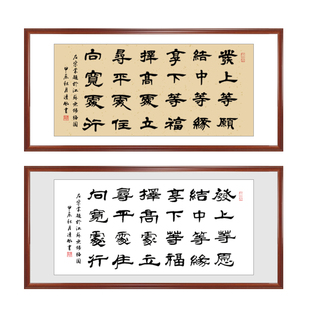 發上等願
結中等緣
享下等福
擇高處立
尋平處住
向寬處行
左宗棠題於江蘇無錫梅園
甲辰秋月
發上等愿
結中等緣
享下等福
擇高處立
尋平處住
向寬處行
左宗棠題於江蘇無錫梅園
甲辰秋月